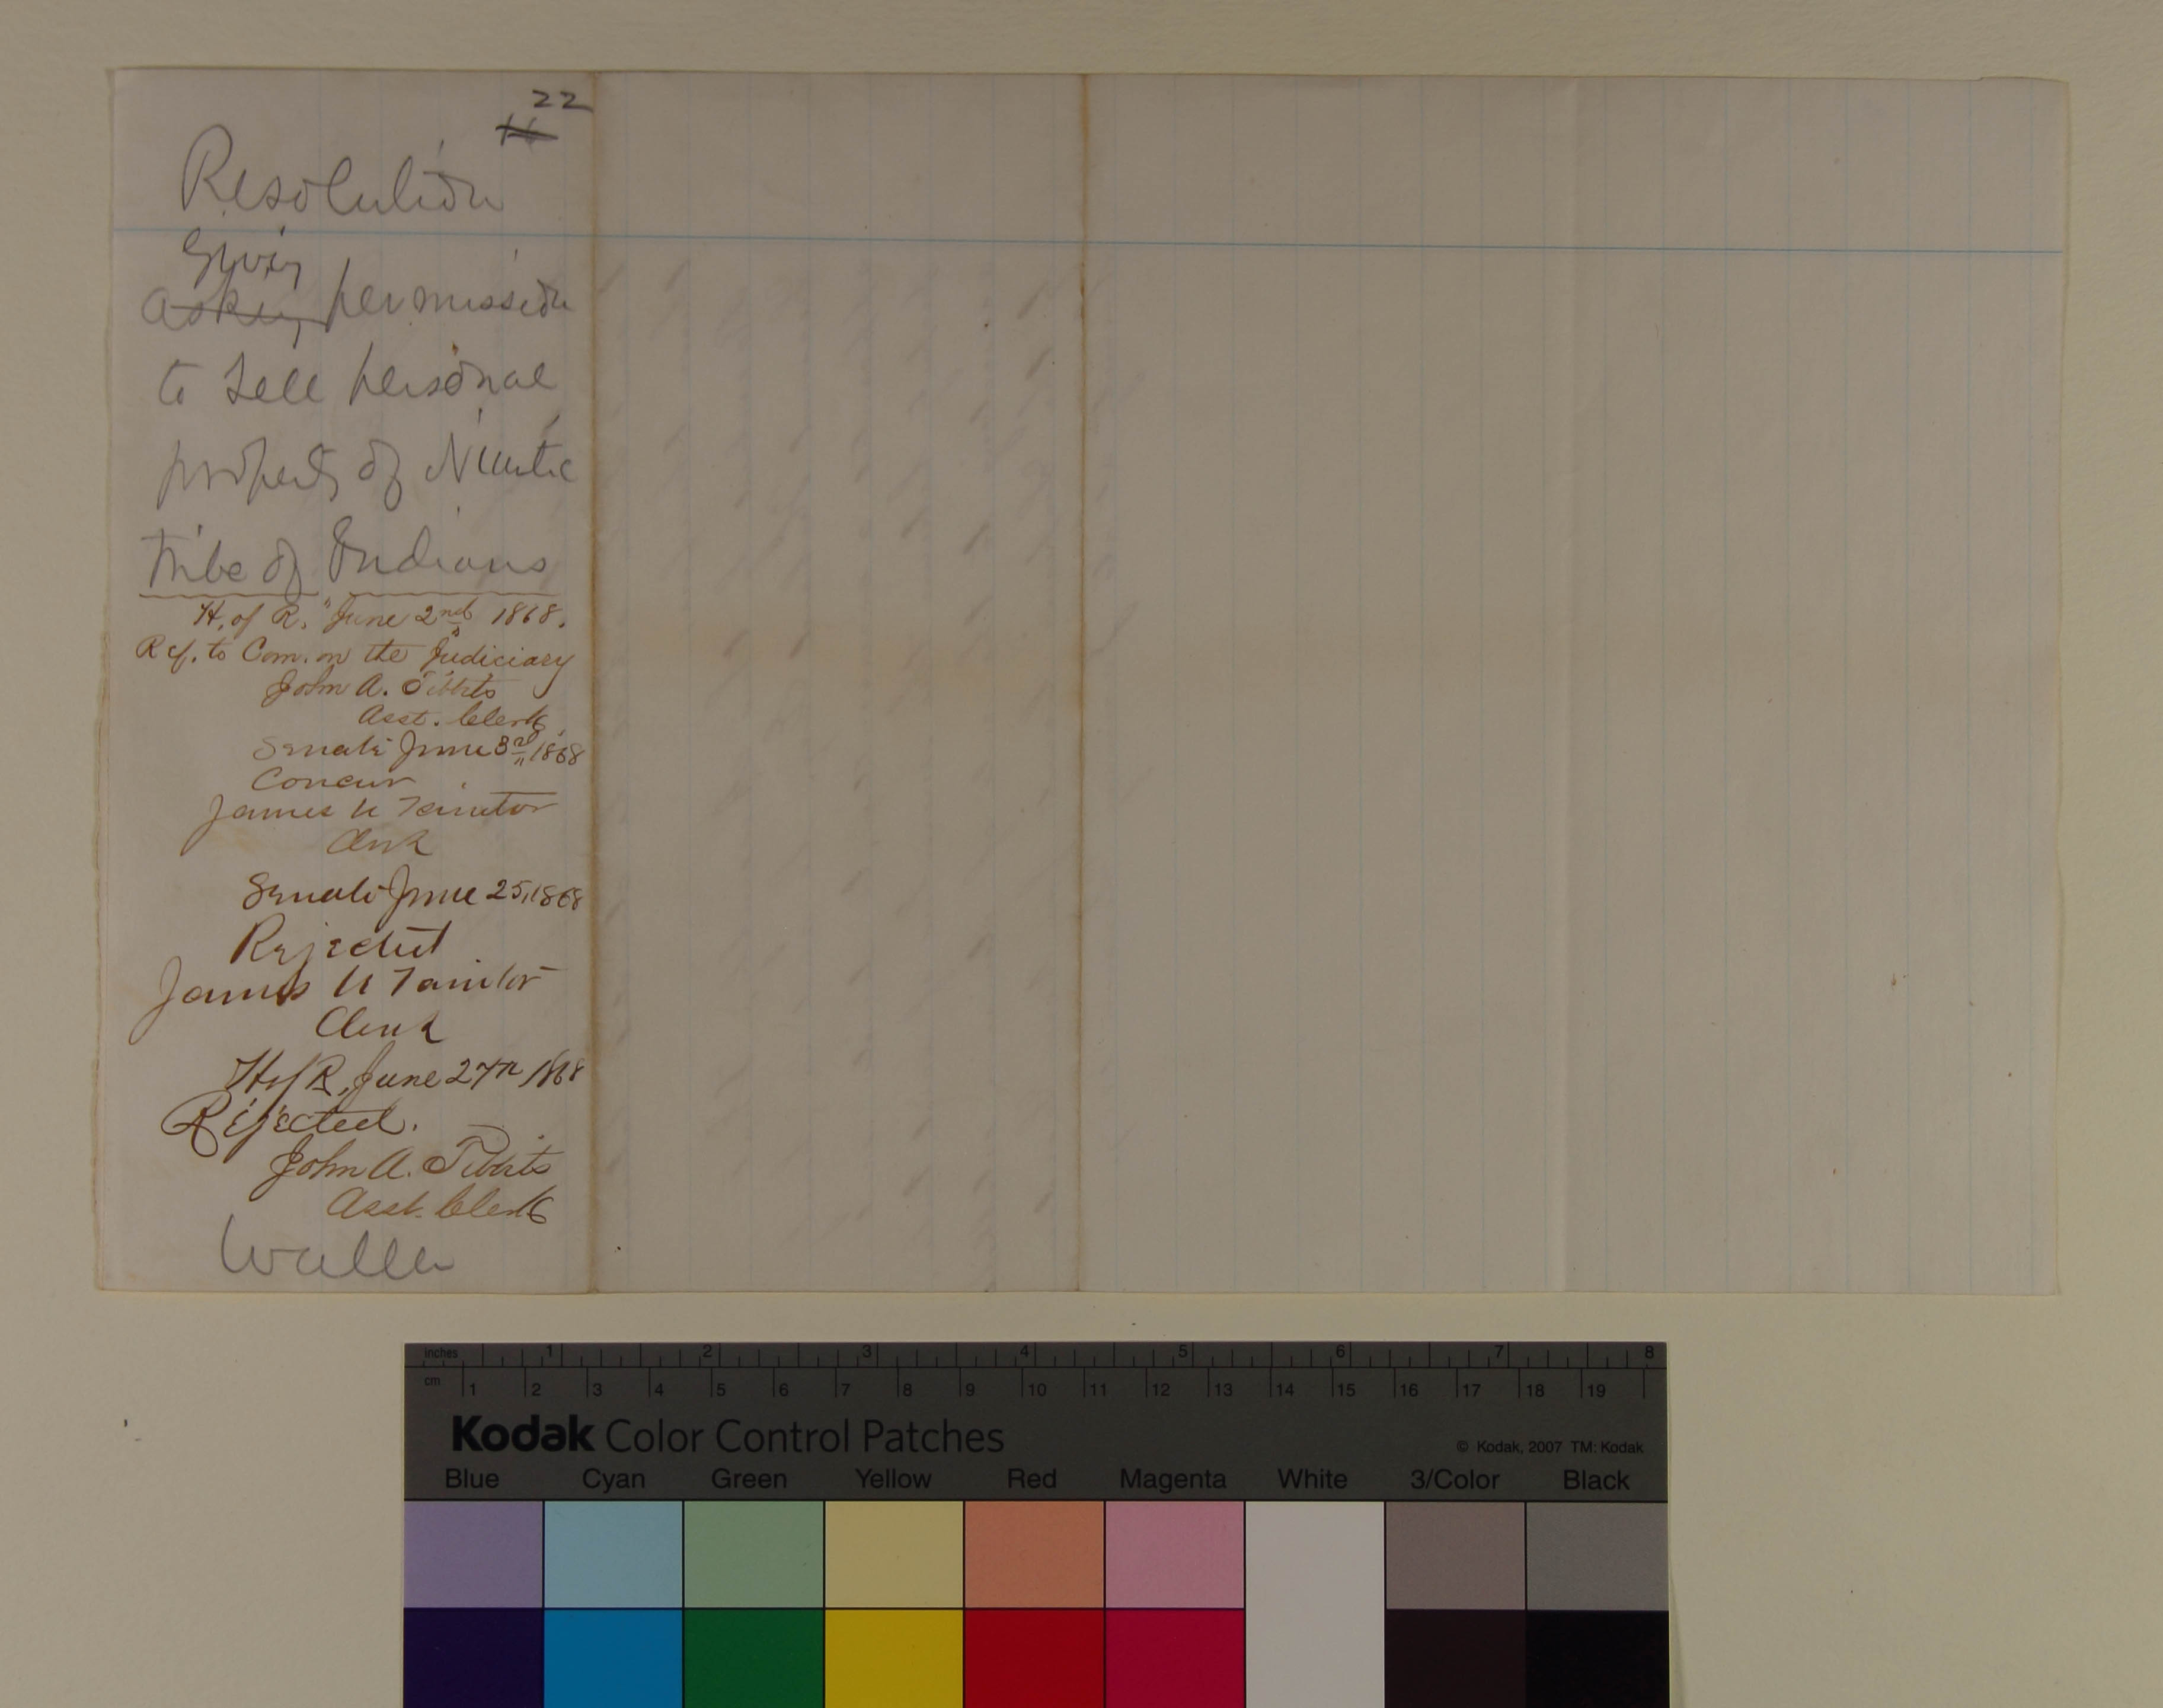 22
Resolution
Giving
asking permission
to sell personal
property of Niantic
tribe of Indians
H. of R. June 2nd 1868.
Ref. to Com. on the Judiciary
John A. Tibbits
Asst. Clerk
Senate June 3rd 1868
Concur
James U Taintor
Clerk
Senate June 25, 1868
Rejected
James U Taintor
Clerk
H of R, June 27th 1868
Rejected.
John A. Tibbits
Asst. Clerk
Waller
inches 1 2 3 4 5 6 7 8
cm 1 2 3 4 5 6 7 8 9 10 11 12 13 14 15 16 17 18 19
Kodak Color Control Patches
© Kodak, 2007 TM: Kodak
Blue Cyan Green Yellow Red Magenta White 3/Color Black